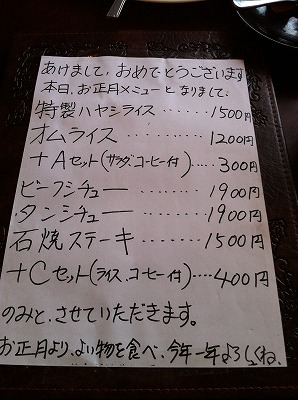 あけまして、おめでとうございます
本日、お正月メニューとなりまして、
特製ハヤシライス・・・・・・・1500円
オムライス・・・・・・・・・1200円
+Aセット(サラダ、コーヒー付)・・・・・300円
ビーフシチュー・・・・・・・・1900円
タンシチュー・・・・・・・・1900円
石焼ステーキ・・・・・・・・1500円
+Cセット(ライス、コヒー付)・・・・400円
のみと、させていただきます。
お正月より、よい物を食べ、今年一年よろしくね、